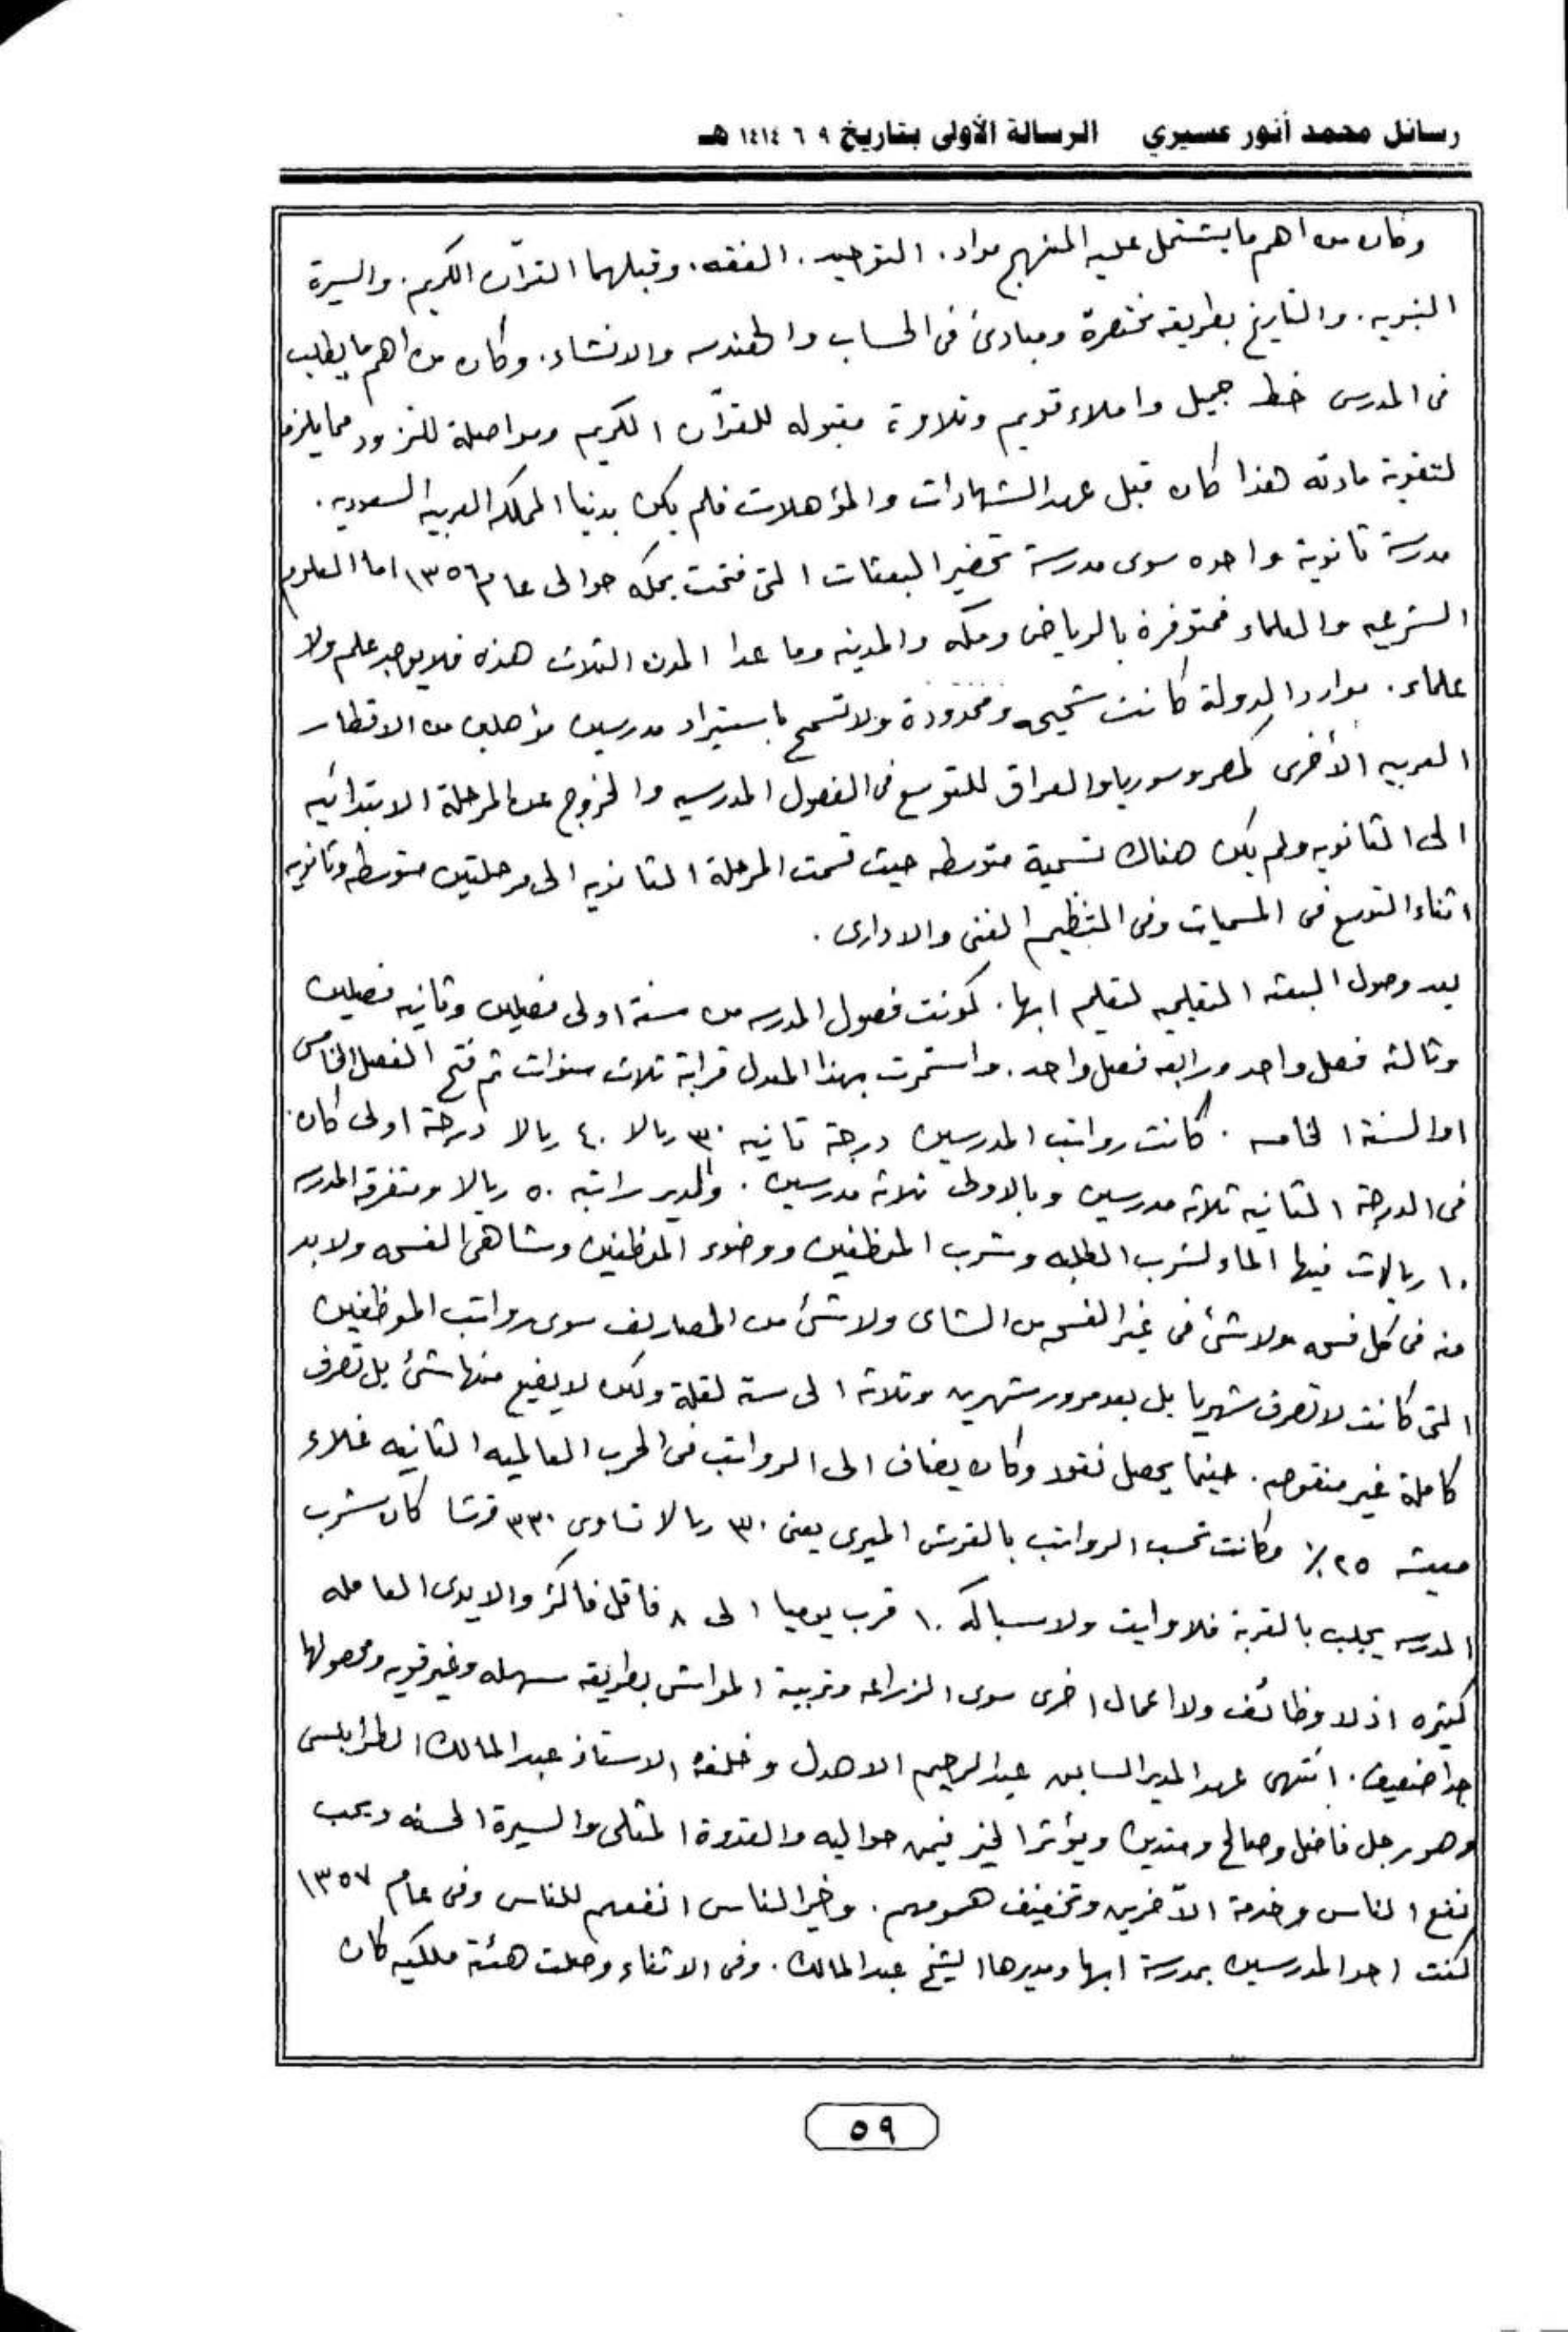 رسائل محمد أنور عسيري الرسالة الأولى بتاريخ ٩ ٦ ١٤١٤ هـ
وكان من اهم ما يشتمل عليه المنهج مواد. التوحيد. الفقه. وقبلهما القرآن الكريم. والسيرة
النبويه. والتاريخ بطريقه مختصرة ومبادئ فى الحساب والهندسه والانشاء. وكان من اهم ما يطلب
فى المدرس خط جميل واملاء قويم وتلاوة مقبوله للقرآن الكريم ومواصلة للتزود مما يلزم
لتقوية مادته هذا كان قبل عهد الشهادات والمؤهلات فلم يكن بدنيا المملكه العربيه السعوديه.
مدرسة ثانوية واحده سوى مدرسة تحضير البعثات التى فتحت بمكه حوالى عام ١٣٥٦ اما العلوم
الشرعيه والعلماء فمتوفرة بالرياض ومكه والمدينه وما عدا المدن الثلاث هذه فلا يوجد علم ولا
علماء. موارد الدولة كانت شحيحه ومحدودة ولا تسمح باستيراد مدرسين مؤهلين من الاقطار
العربيه الأخرى كمصر وسوريا والعراق للتوسع فى الفصول المدرسيه والخروج عن المرحلة الابتدائيه
الى الثانويه ولم يكن هناك تسمية متوسطه حيث قسمت المرحلة الثانويه الى مرحلتين متوسطه وثانويه
اثناء التوسع فى المسميات وفى التنظيم الفنى والادارى.
بعد وصول البعثه التعليميه لتعليم ابها. كونت فصول المدرسه من سنة اولى فصلين وثانيه فصلين
وثالثه فصل واحد ورابعه فصل واحد. واستمرت بهذا المعدل قرابة ثلاث سنوات ثم فتح الفصل الخامس
او السنة الخامسه. كانت رواتب المدرسين درجة ثانيه ٣٠ ريالا ٤٠ ريالا درجة اولى كان
فى الدرجة الثانيه ثلاثة مدرسين وبالاولى ثلاثه مدرسين. والمدير راتبه ٥٠ ريالا ومتفرقه المدرسه
١٠ ريالات فيها الماء لشرب الطلبه وشرب الموظفين ووضوء الموظفين وشاهى الفسحه ولا بد
منه فى كل فسحه ولا شئ فى غير الفسحه من الشاى ولا شئ من المصاريف سوى رواتب الموظفين
التى كانت لا تصرف شهريا بل بعد مرور شهرين وثلاثه الى سته لقلة ولكن لا يضيع منها شئ بل تصرف
كاملة غير منقوصه. حينما يحصل نقود وكان يضاف الى الرواتب فى الحرب العالميه الثانيه غلاء
معيشه ٢٥٪ وكانت تحسب الرواتب بالقرش الميرى يعنى ٣٠ ريالا تساوى ٣٣٠ قرشا كان شرب
المدرسه يجلب بالقربة فلا وايت ولا سباكه ١٠ قرب يوميا الى ٨ فاقل فاكثر والايدى العامله
كثيره اذ لا وظائف ولا اعمال اخرى سوى الزراعه وتربية المواشى بطريقه سهله وغير قويه ومحصولها
جدا ضعيف. انتهى عهد المدير السابق عبدالرحيم الاهدل وخلفه الاستاذ عبدالمالك الطرابلسى
وهو رجل فاضل وصالح ومتدين ويؤثر الخير فيمن حواليه والقدوة المثلى والسيرة الحسنه ويحب
نفع الناس وخدمة الآخرين وتخفيف همومهم. وخير الناس انفعهم للناس وفى عام ١٣٥٧
كنت احد المدرسين بمدرسة ابها ومديرها الشيخ عبدالمالك. وفى الاثناء وصلت هئة ملكيه كان
٥٩